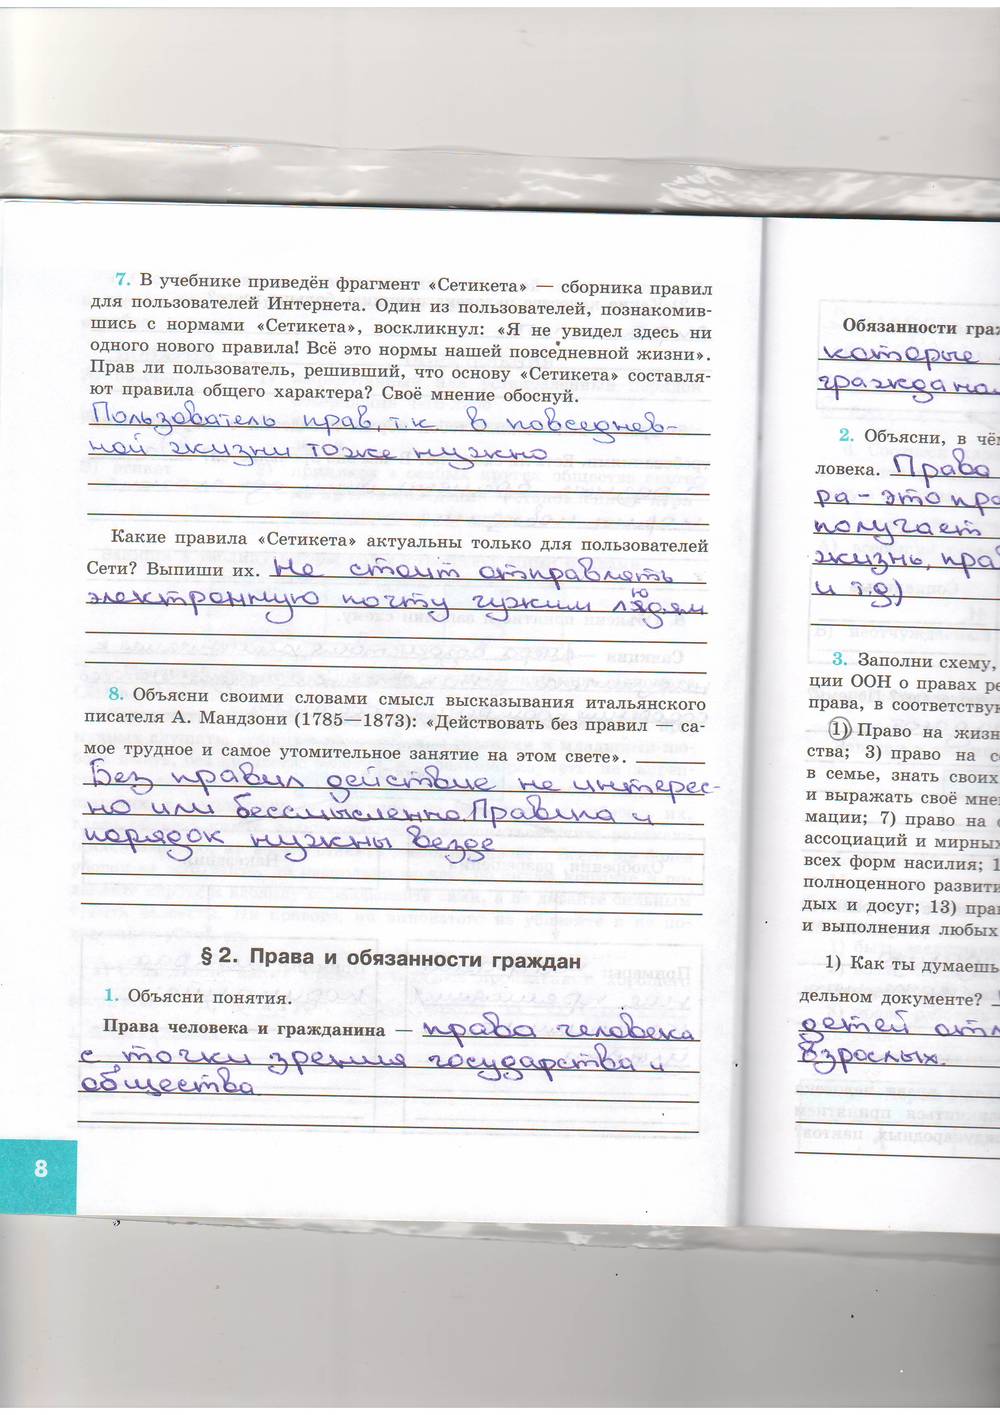 7. В учебнике приведён фрагмент «Сетикета» — сборника правил
для пользователей Интернета. Один из пользователей, познакомив-
шись с нормами «Сетикета», воскликнул: «Я не увидел здесь ни
одного нового правила! Всё это нормы нашей повседневной жизни».
Прав ли пользователь, решивший, что основу «Сетикета» составля-
ют правила общего характера? Своё мнение обоснуй.
Пользователь прав, т.к. в повседнев-
ной жизни тоже нужно
Какие правила «Сетикета» актуальны только для пользователей
Сети? Выпиши их. Не стоит отправлять
электронную почту чужим людям
8. Объясни своими словами смысл высказывания итальянского
писателя А. Мандзони (1785—1873): «Действовать без правил — са-
мое трудное и самое утомительное занятие на этом свете».
Без правил действие не интерес-
но или бессмысленно. Правила и
порядок нужны везде
§ 2. Права и обязанности граждан
1. Объясни понятия.
Права человека и гражданина — права человека
с точки зрения государства и
общества
8
Обязанности граж
которые
граждан
2. Объясни, в чём
ловека. Права
ра - это пра
получает
жизнь, прав
и т.д)
3. Заполни схему,
ции ООН о правах ре
права, в соответствую
1) Право на жизн
ства; 3) право на с
в семье, знать своих
и выражать своё мне
мации; 7) право на
ассоциаций и мирных
всех форм насилия; 1
полноценного развити
дых и досуг; 13) пра
и выполнения любых
1) Как ты думаешь
дельном документе?
детей отл
взрослых.